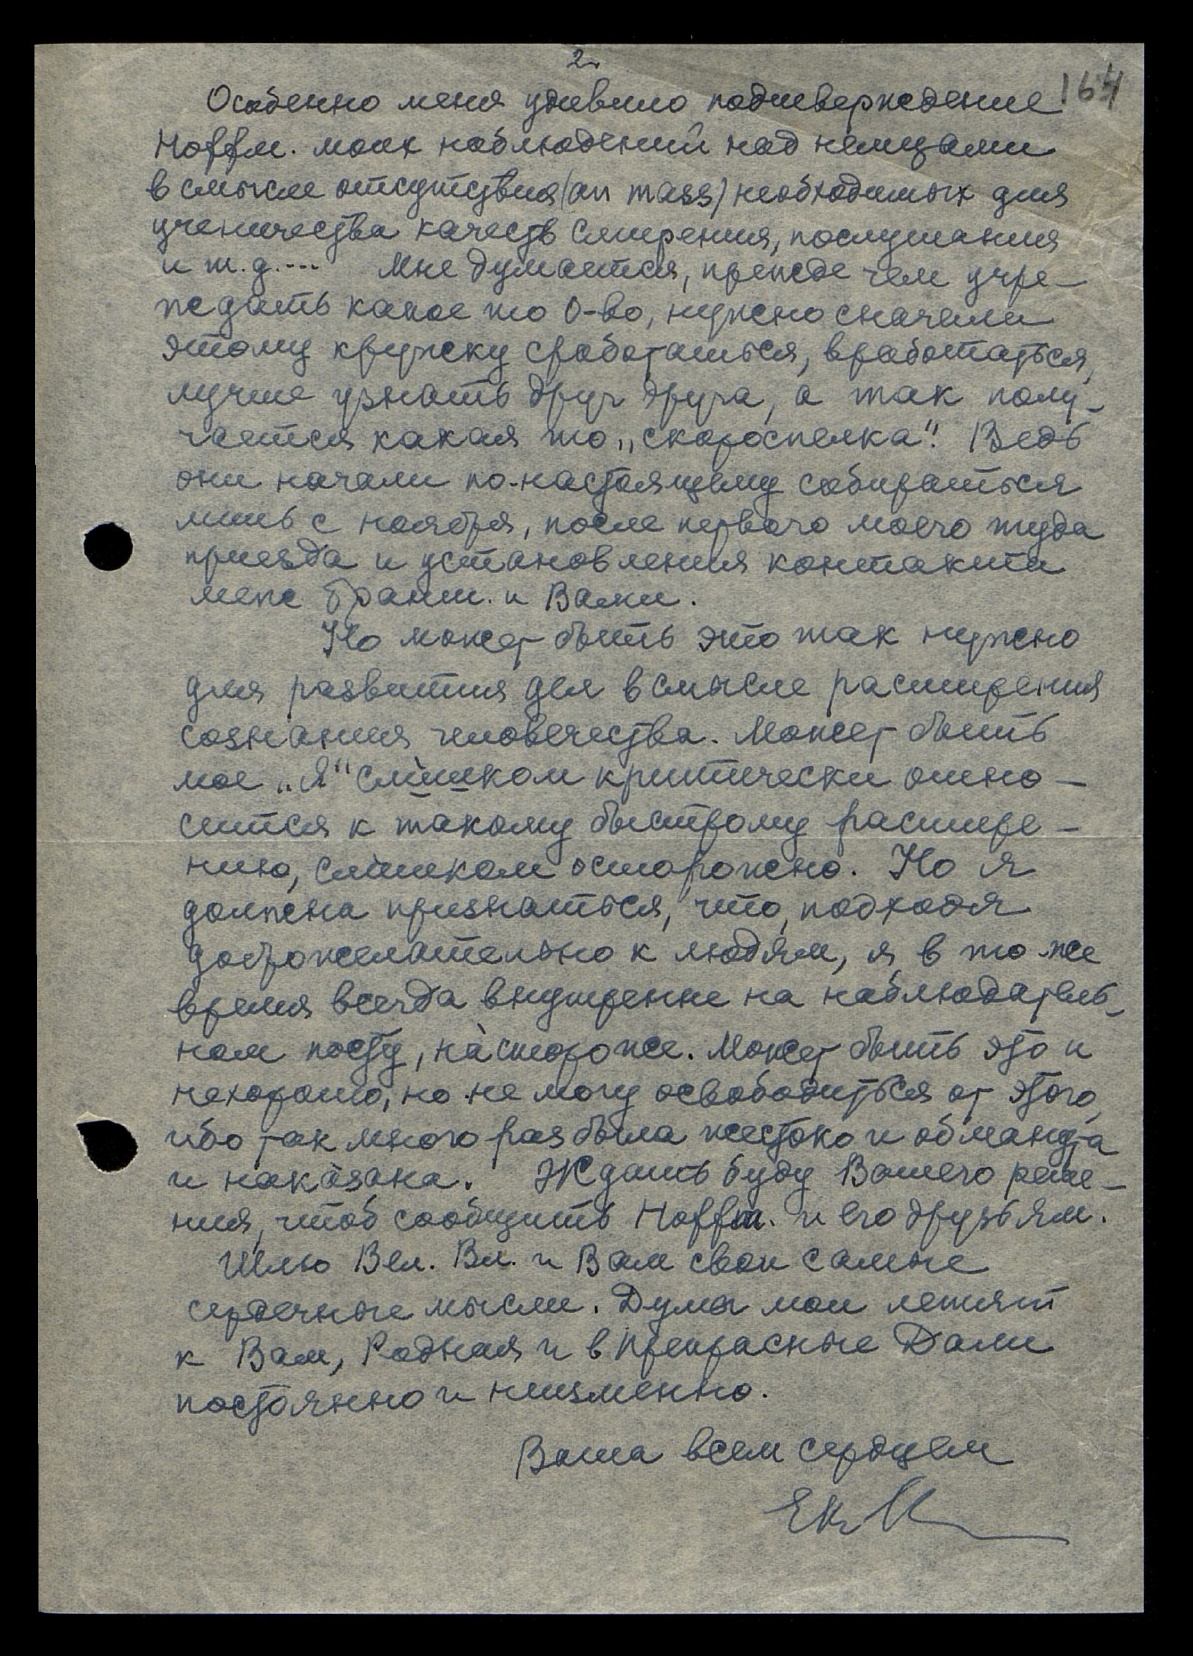 2.
164
Особенно меня удивило подтверждение
Hoffm. моих наблюдений над немцами
в смысле отсутствия (an mass) необходимых для
ученичества качеств смирения, послушания
и т.д.... Мне думается, прежде чем учре-
ждать какое то О-во, нужно сначала
этому кружку сработаться, вработаться,
лучше узнать друг друга, а так полу-
чается какая то „скороспелка“. Ведь
они начали по-настоящему собираться
лишь с ноября, после первого моего туда
приезда и установления контакта
меж Гранш. и Вами.
Но может быть это так нужно
для развития дел в смысле расширения
сознания человечества. Может быть
мое „Я“ слишком критически отно-
сится к такому быстрому расшире-
нию, слишком осторожно. Но я
должна признаться, что, подходя
доброжелательно к людям, я в то же
время всегда внутренне на наблюдатель-
ном посту, на стороже. Может быть это и
нехорошо, но не могу освободиться от этого,
ибо так много раз была жестоко и обманута
и наказана. Ждать буду Вашего реше-
ния, чтоб сообщить Hoffm. и его друзьям.
Шлю Вел. Вл. и Вам свои самые
сердечные мысли. Думы мои летят
к Вам, Родная и в Прекрасные Дали
постоянно и неизменно.
Ваша всем сердцем